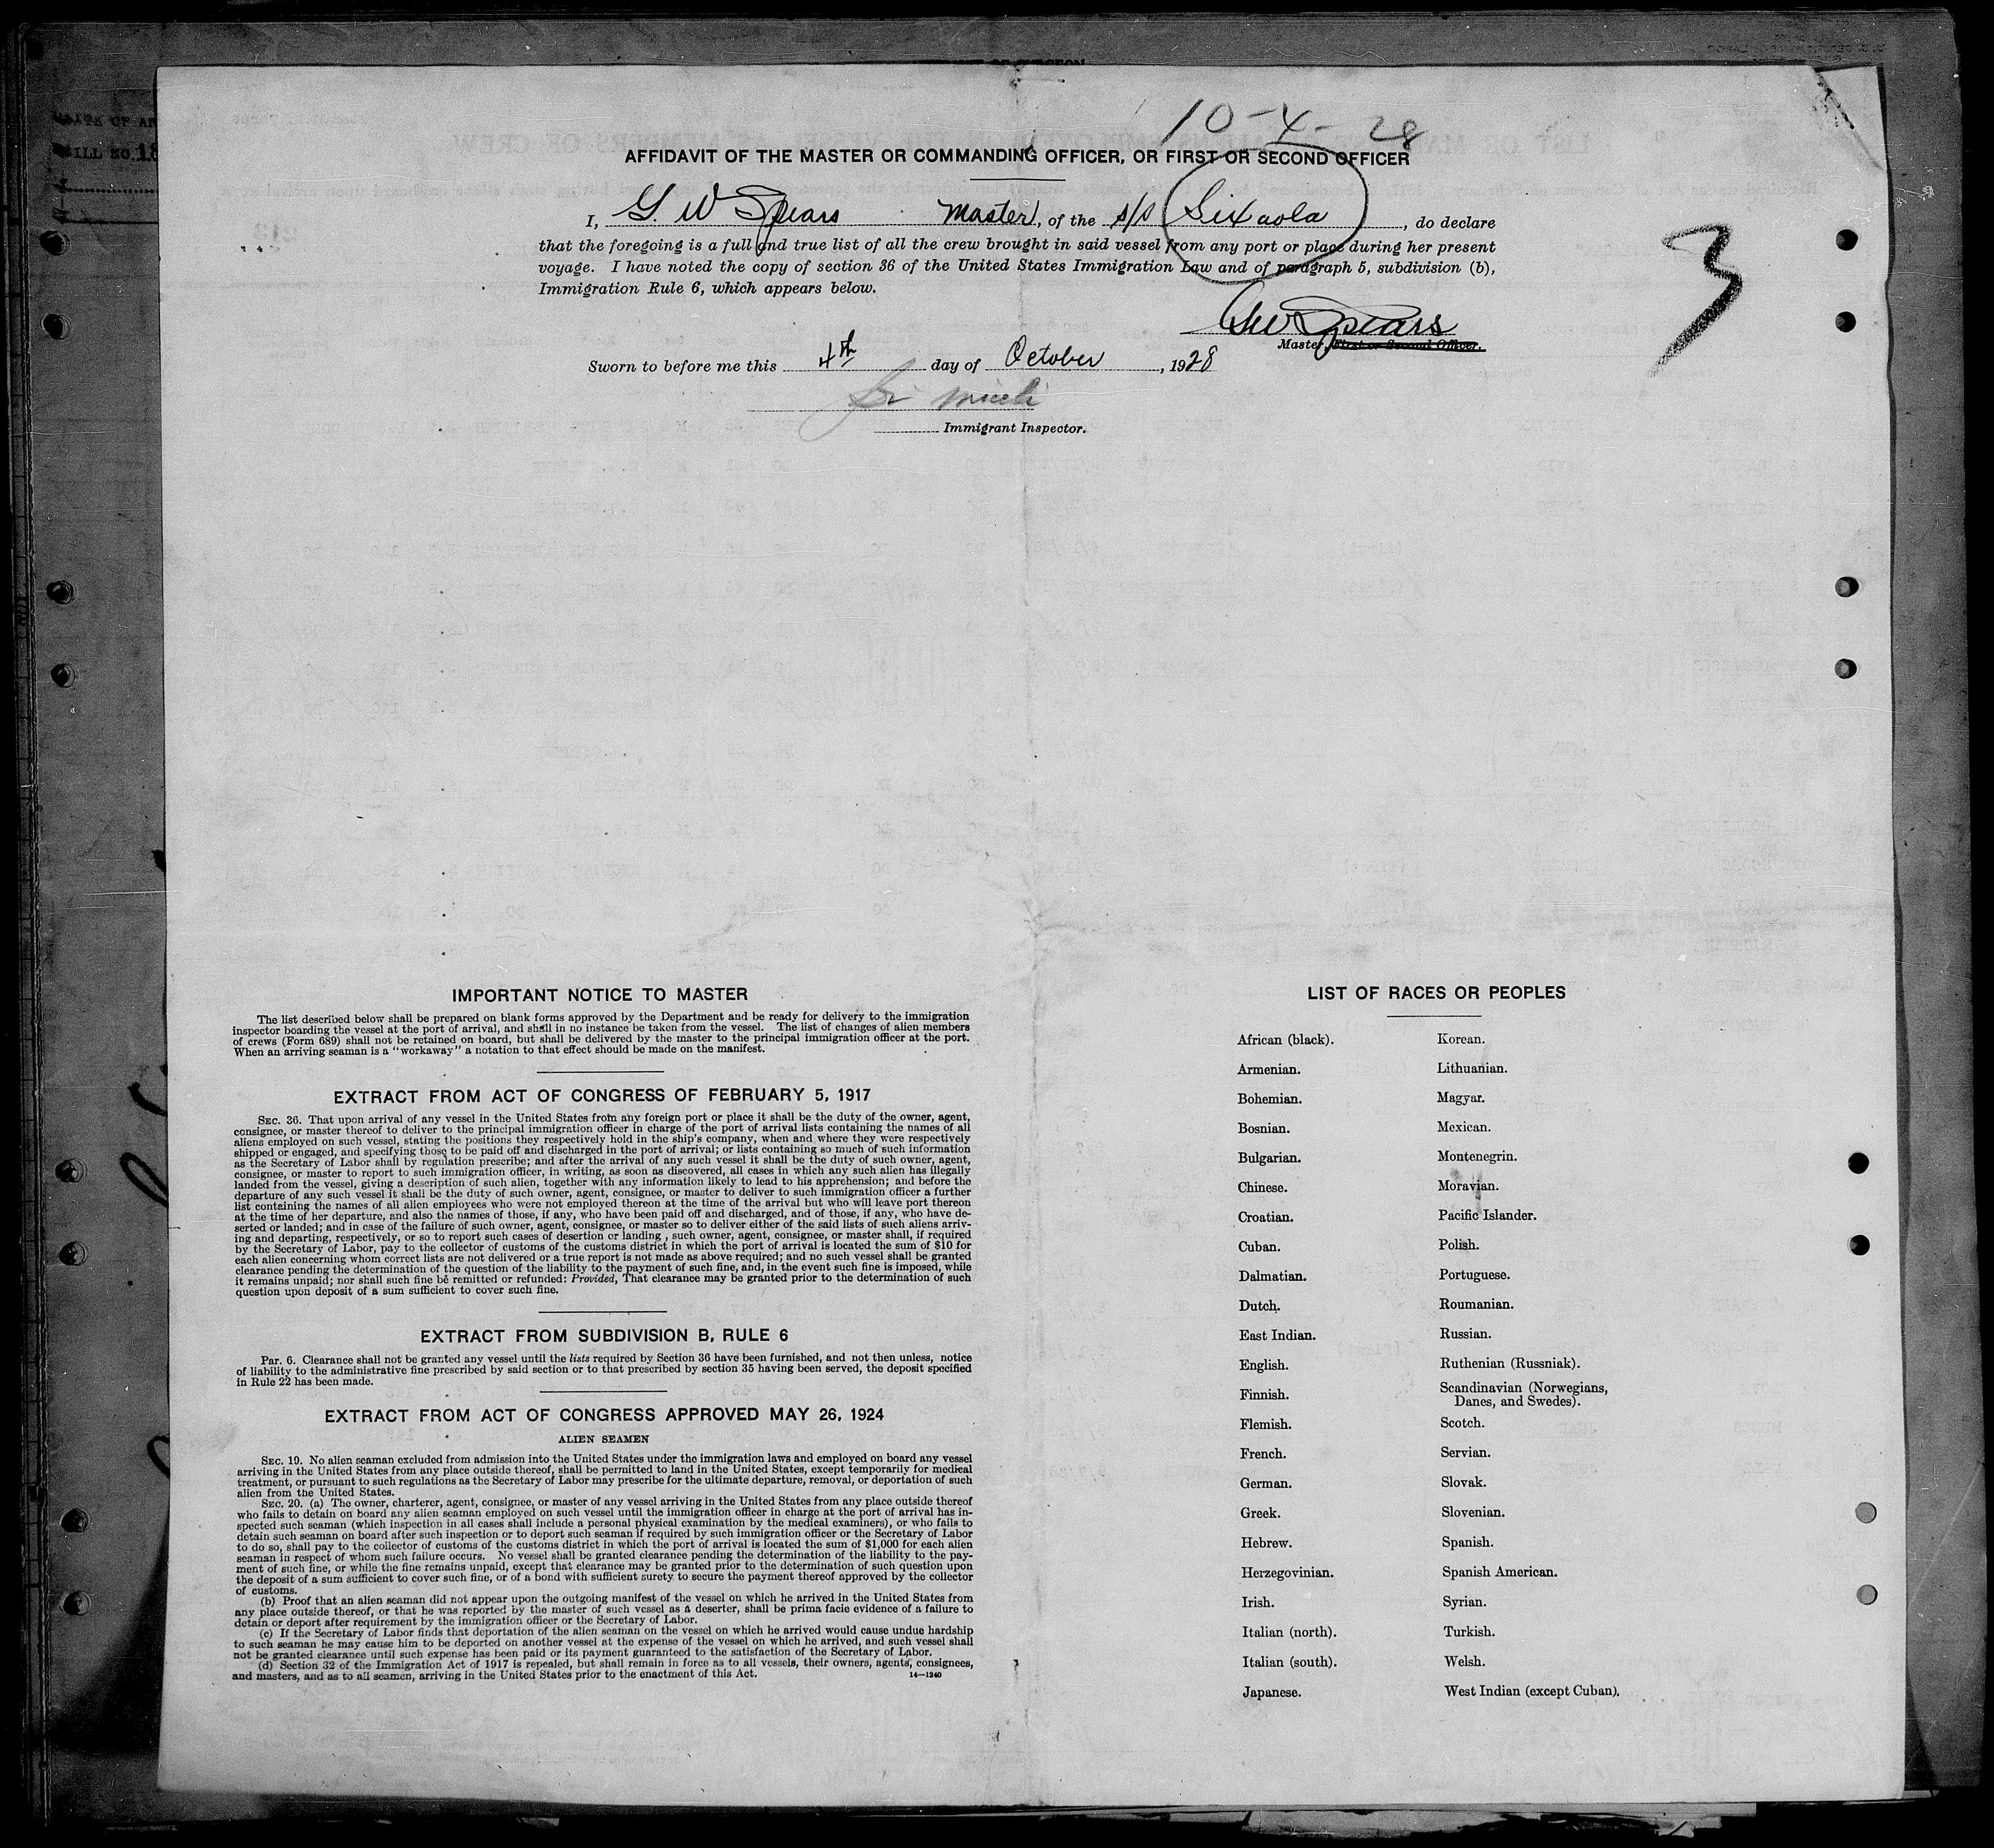 10-4-28
AFFIDAVIT OF THE MASTER OR COMMANDING OFFICER, OR FIRST OR SECOND OFFICER
I, G. W Spears Master, of the s/s Sixaola, do declare
that the foregoing is a full and true list of all the crew brought in said vessel from any port or place during her present
voyage. I have noted the copy of section 36 of the United States Immigration Law and of paragraph 5, subdivision (b),
Immigration Rule 6, which appears below.
3
GW Spears
Master, First or Second Officer.
Sworn to before me this 4th day of October, 1928
Immigrant Inspector.
IMPORTANT NOTICE TO MASTER
The list described below shall be prepared on blank forms approved by the Department and be ready for delivery to the immigration
inspector boarding the vessel at the port of arrival, and shall in no instance be taken from the vessel. The list of changes of alien members
of crews (Form 689) shall not be retained on board, but shall be delivered by the master to the principal immigration officer at the port.
When an arriving seaman is a "workaway" a notation to that effect should be made on the manifest.
EXTRACT FROM ACT OF CONGRESS OF FEBRUARY 5, 1917
SEC. 36. That upon arrival of any vessel in the United States from any foreign port or place it shall be the duty of the owner, agent,
consignee, or master thereof to deliver to the principal immigration officer in charge of the port of arrival lists containing the names of all
aliens employed on such vessel, stating the positions they respectively hold in the ship's company, when and where they were respectively
shipped or engaged, and specifying those to be paid off and discharged in the port of arrival; or lists containing so much of such information
as the Secretary of Labor shall by regulation prescribe; and after the arrival of any such vessel it shall be the duty of such owner, agent,
consignee, or master to report to such immigration officer, in writing, as soon as discovered, all cases in which any such alien has illegally
landed from the vessel, giving a description of such alien, together with any information likely to lead to his apprehension; and before the
departure of any such vessel it shall be the duty of such owner, agent, consignee, or master to deliver to such immigration officer a further
list containing the names of all alien employees who were not employed thereon at the time of the arrival but who will leave port thereon
at the time of her departure, and also the names of those, if any, who have been paid off and discharged, and of those, if any, who have de-
serted or landed; and in case of the failure of such owner, agent, consignee, or master so to deliver either of the said lists of such aliens arriv-
ing and departing, respectively, or so to report such cases of desertion or landing , such owner, agent, consignee, or master shall, if required
by the Secretary of Labor, pay to the collector of customs of the customs district in which the port of arrival is located the sum of $10 for
each alien concerning whom correct lists are not delivered or a true report is not made as above required; and no such vessel shall be granted
clearance pending the determination of the question of the liability to the payment of such fine, and, in the event such fine is imposed, while
it remains unpaid; nor shall such fine be remitted or refunded: Provided, That clearance may be granted prior to the determination of such
question upon deposit of a sum sufficient to cover such fine.
EXTRACT FROM SUBDIVISION B, RULE 6
Par. 6. Clearance shall not be granted any vessel until the lists required by Section 36 have been furnished, and not then unless, notice
of liability to the administrative fine prescribed by said section or to that prescribed by section 35 having been served, the deposit specified
in Rule 22 has been made.
EXTRACT FROM ACT OF CONGRESS APPROVED MAY 26, 1924
ALIEN SEAMEN
SEC. 19. No alien seaman excluded from admission into the United States under the immigration laws and employed on board any vessel
arriving in the United States from any place outside thereof, shall be permitted to land in the United States, except temporarily for medical
treatment, or pursuant to such regulations as the Secretary of Labor may prescribe for the ultimate departure, removal, or deportation of such
alien from the United States.
SEC. 20. (a) The owner, charterer, agent, consignee, or master of any vessel arriving in the United States from any place outside thereof
who fails to detain on board any alien seaman employed on such vessel until the immigration officer in charge at the port of arrival has in-
spected such seaman (which inspection in all cases shall include a personal physical examination by the medical examiners), or who fails to
detain such seaman on board after such inspection or to deport such seaman if required by such immigration officer or the Secretary of Labor
to do so, shall pay to the collector of customs of the customs district in which the port of arrival is located the sum of $1,000 for each alien
seaman in respect of whom such failure occurs. No vessel shall be granted clearance pending the determination of the liability to the pay-
ment of such fine, or while the fine remains unpaid, except that clearance may be granted prior to the determination of such question upon
the deposit of a sum sufficient to cover such fine, or of a bond with sufficient surety to secure the payment thereof approved by the collector
of customs.
(b) Proof that an alien seaman did not appear upon the outgoing manifest of the vessel on which he arrived in the United States from
any place outside thereof, or that he was reported by the master of such vessel as a deserter, shall be prima facie evidence of a failure to
detain or deport after requirement by the immigration officer or the Secretary of Labor.
(c) If the Secretary of Labor finds that deportation of the alien seaman on the vessel on which he arrived would cause undue hardship
to such seaman he may cause him to be deported on another vessel at the expense of the vessel on which he arrived, and such vessel shall
not be granted clearance until such expense has been paid or its payment guaranteed to the satisfaction of the Secretary of Labor.
(d) Section 32 of the Immigration Act of 1917 is repealed, but shall remain in force as to all vessels, their owners, agents, consignees,
and masters, and as to all seamen, arriving in the United States prior to the enactment of this Act.
14—1240
LIST OF RACES OR PEOPLES
African (black).
Armenian.
Bohemian.
Bosnian.
Bulgarian.
Chinese.
Croatian.
Cuban.
Dalmatian.
Dutch.
East Indian.
English.
Finnish.
Flemish.
French.
German.
Greek.
Hebrew.
Herzegovinian.
Irish.
Italian (north).
Italian (south).
Japanese.
Korean.
Lithuanian.
Magyar.
Mexican.
Montenegrin.
Moravian.
Pacific Islander.
Polish.
Portuguese.
Roumanian.
Russian.
Ruthenian (Russniak).
Scandinavian (Norwegians,
Danes, and Swedes).
Scotch.
Servian.
Slovak.
Slovenian.
Spanish.
Spanish American.
Syrian.
Turkish.
Welsh.
West Indian (except Cuban).